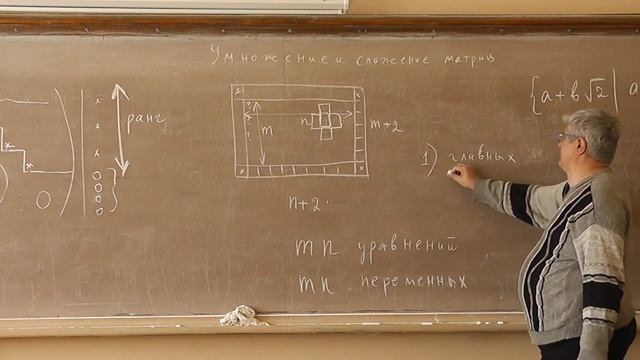 Умножение и сложение матриц
ранг
m
n
m+2
n+2
{a+b√2 | a
1) главных
mn уравнений
mn переменных